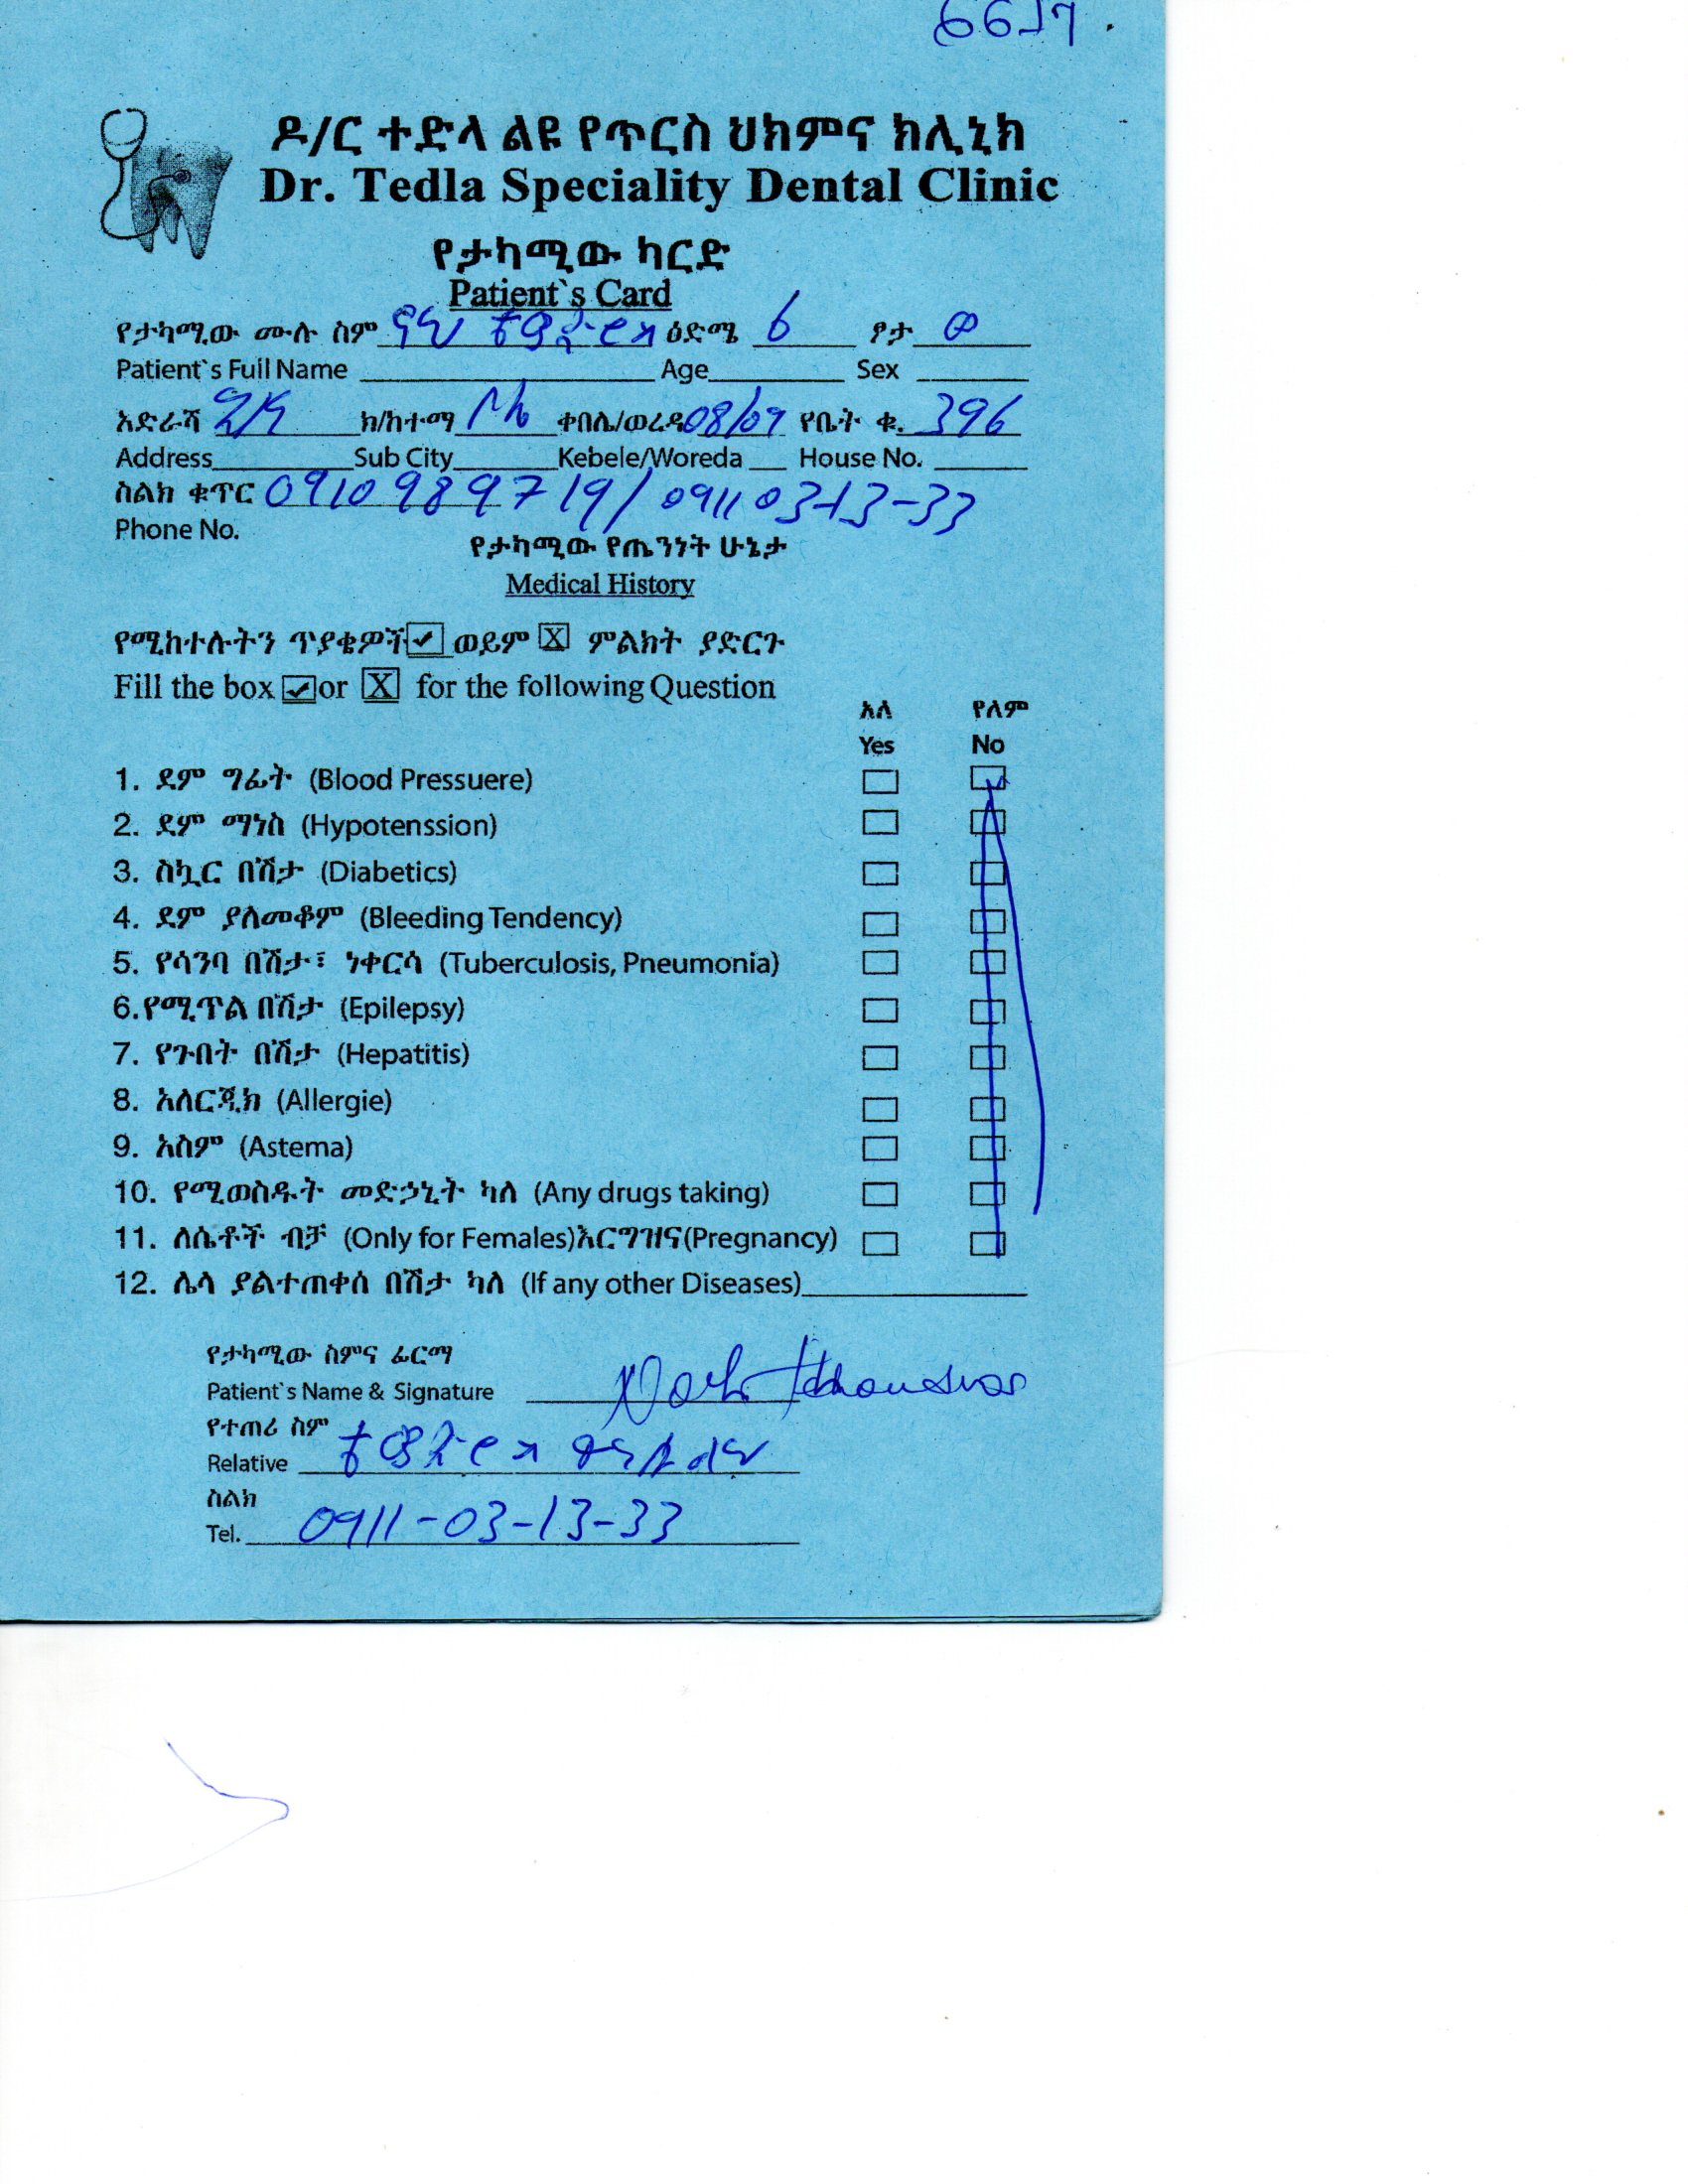 ዶ/ር ተድላ ልዩ የጥርስ ህክምና ክሊኒክ
Dr. Tedla Speciality Dental Clinic
የታካሚው ካርድ
Patient`s Card
የታካሚው ሙሉ ስም ዕድሜ 6 ፆታ
Patient`s Full Name Age Sex
አድራሻ ክ/ከተማ ቀበሌ/ወረዳ 08/09 የቤት ቁ. 396
Address Sub City Kebele/Woreda House No.
ስልክ ቁጥር 0910989719/ 0911 03-13-33
Phone No.
የታካሚው የጤንነት ሁኔታ
Medical History
የሚከተሉትን ጥያቄዎች ወይም X ምልክት ያድርጉ
Fill the box or X for the following Question
አለ የለም
Yes No
1. ደም ግፊት (Blood Pressuere)
2. ደም ማነስ (Hypotenssion)
3. ስኳር በሽታ (Diabetics)
4. ደም ያለመቆም (Bleeding Tendency)
5. የሳንባ በሽታ፣ ነቀርሳ (Tuberculosis, Pneumonia)
6.የሚጥል በሽታ (Epilepsy)
7. የጉበት በሽታ (Hepatitis)
8. አለርጂክ (Allergie)
9. አስም (Astema)
10. የሚወስዱት መድኃኒት ካለ (Any drugs taking)
11. ለሴቶች ብቻ (Only for Females)እርግዝና(Pregnancy)
12. ሌላ ያልተጠቀሰ በሽታ ካለ (If any other Diseases)
የታካሚው ስምና ፊርማ
Patient`s Name & Signature
የተጠሪ ስም
Relative
ስልክ
Tel. 0911-03-13-33